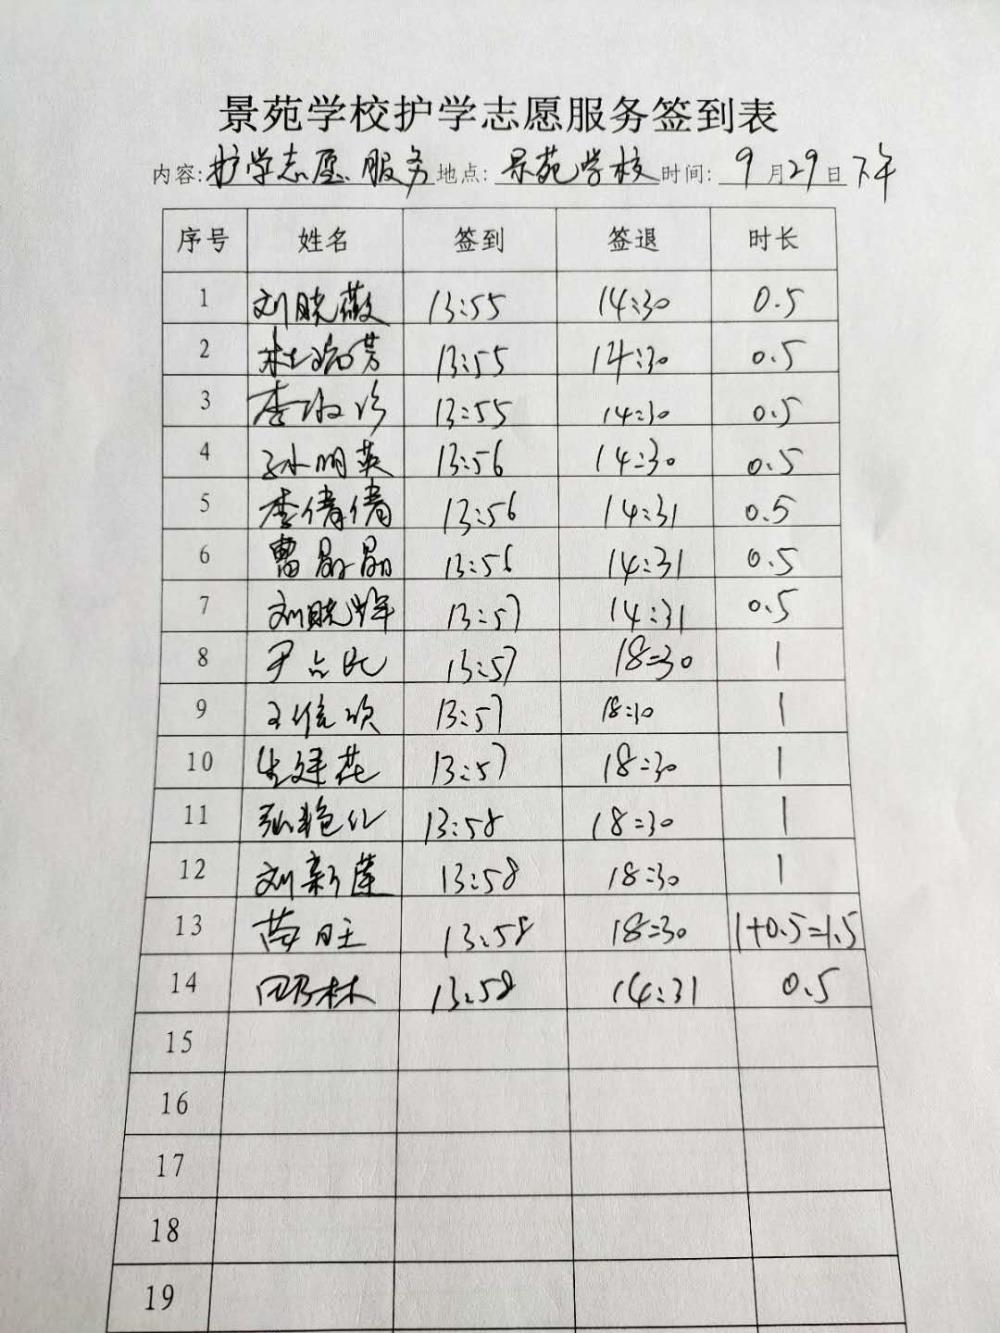 景苑学校护学志愿服务签到表
内容:护学志愿服务 地点:景苑学校 时间:9月29日下午
序号 姓名 签到 签退 时长
1 刘晓薇 13:55 14:30 0.5
2 杜 芳 13:55 14:30 0.5
3 李淑珍 13:55 14:30 0.5
4 孙明英 13:56 14:30 0.5
5 李倩倩 13:56 14:31 0.5
6 曹晶晶 13:56 14:31 0.5
7 刘晓辉 13:57 14:31 0.5
8 尹 13:57 18:30 1
9 王 13:57 18:10 1
10 花 13:57 18:30 1
11 张艳 13:58 18:30 1
12 刘新莲 13:58 18:30 1
13 旺 13:58 18:30 1+0.5=1.5
14 林 13:58 14:31 0.5
15
16
17
18
19